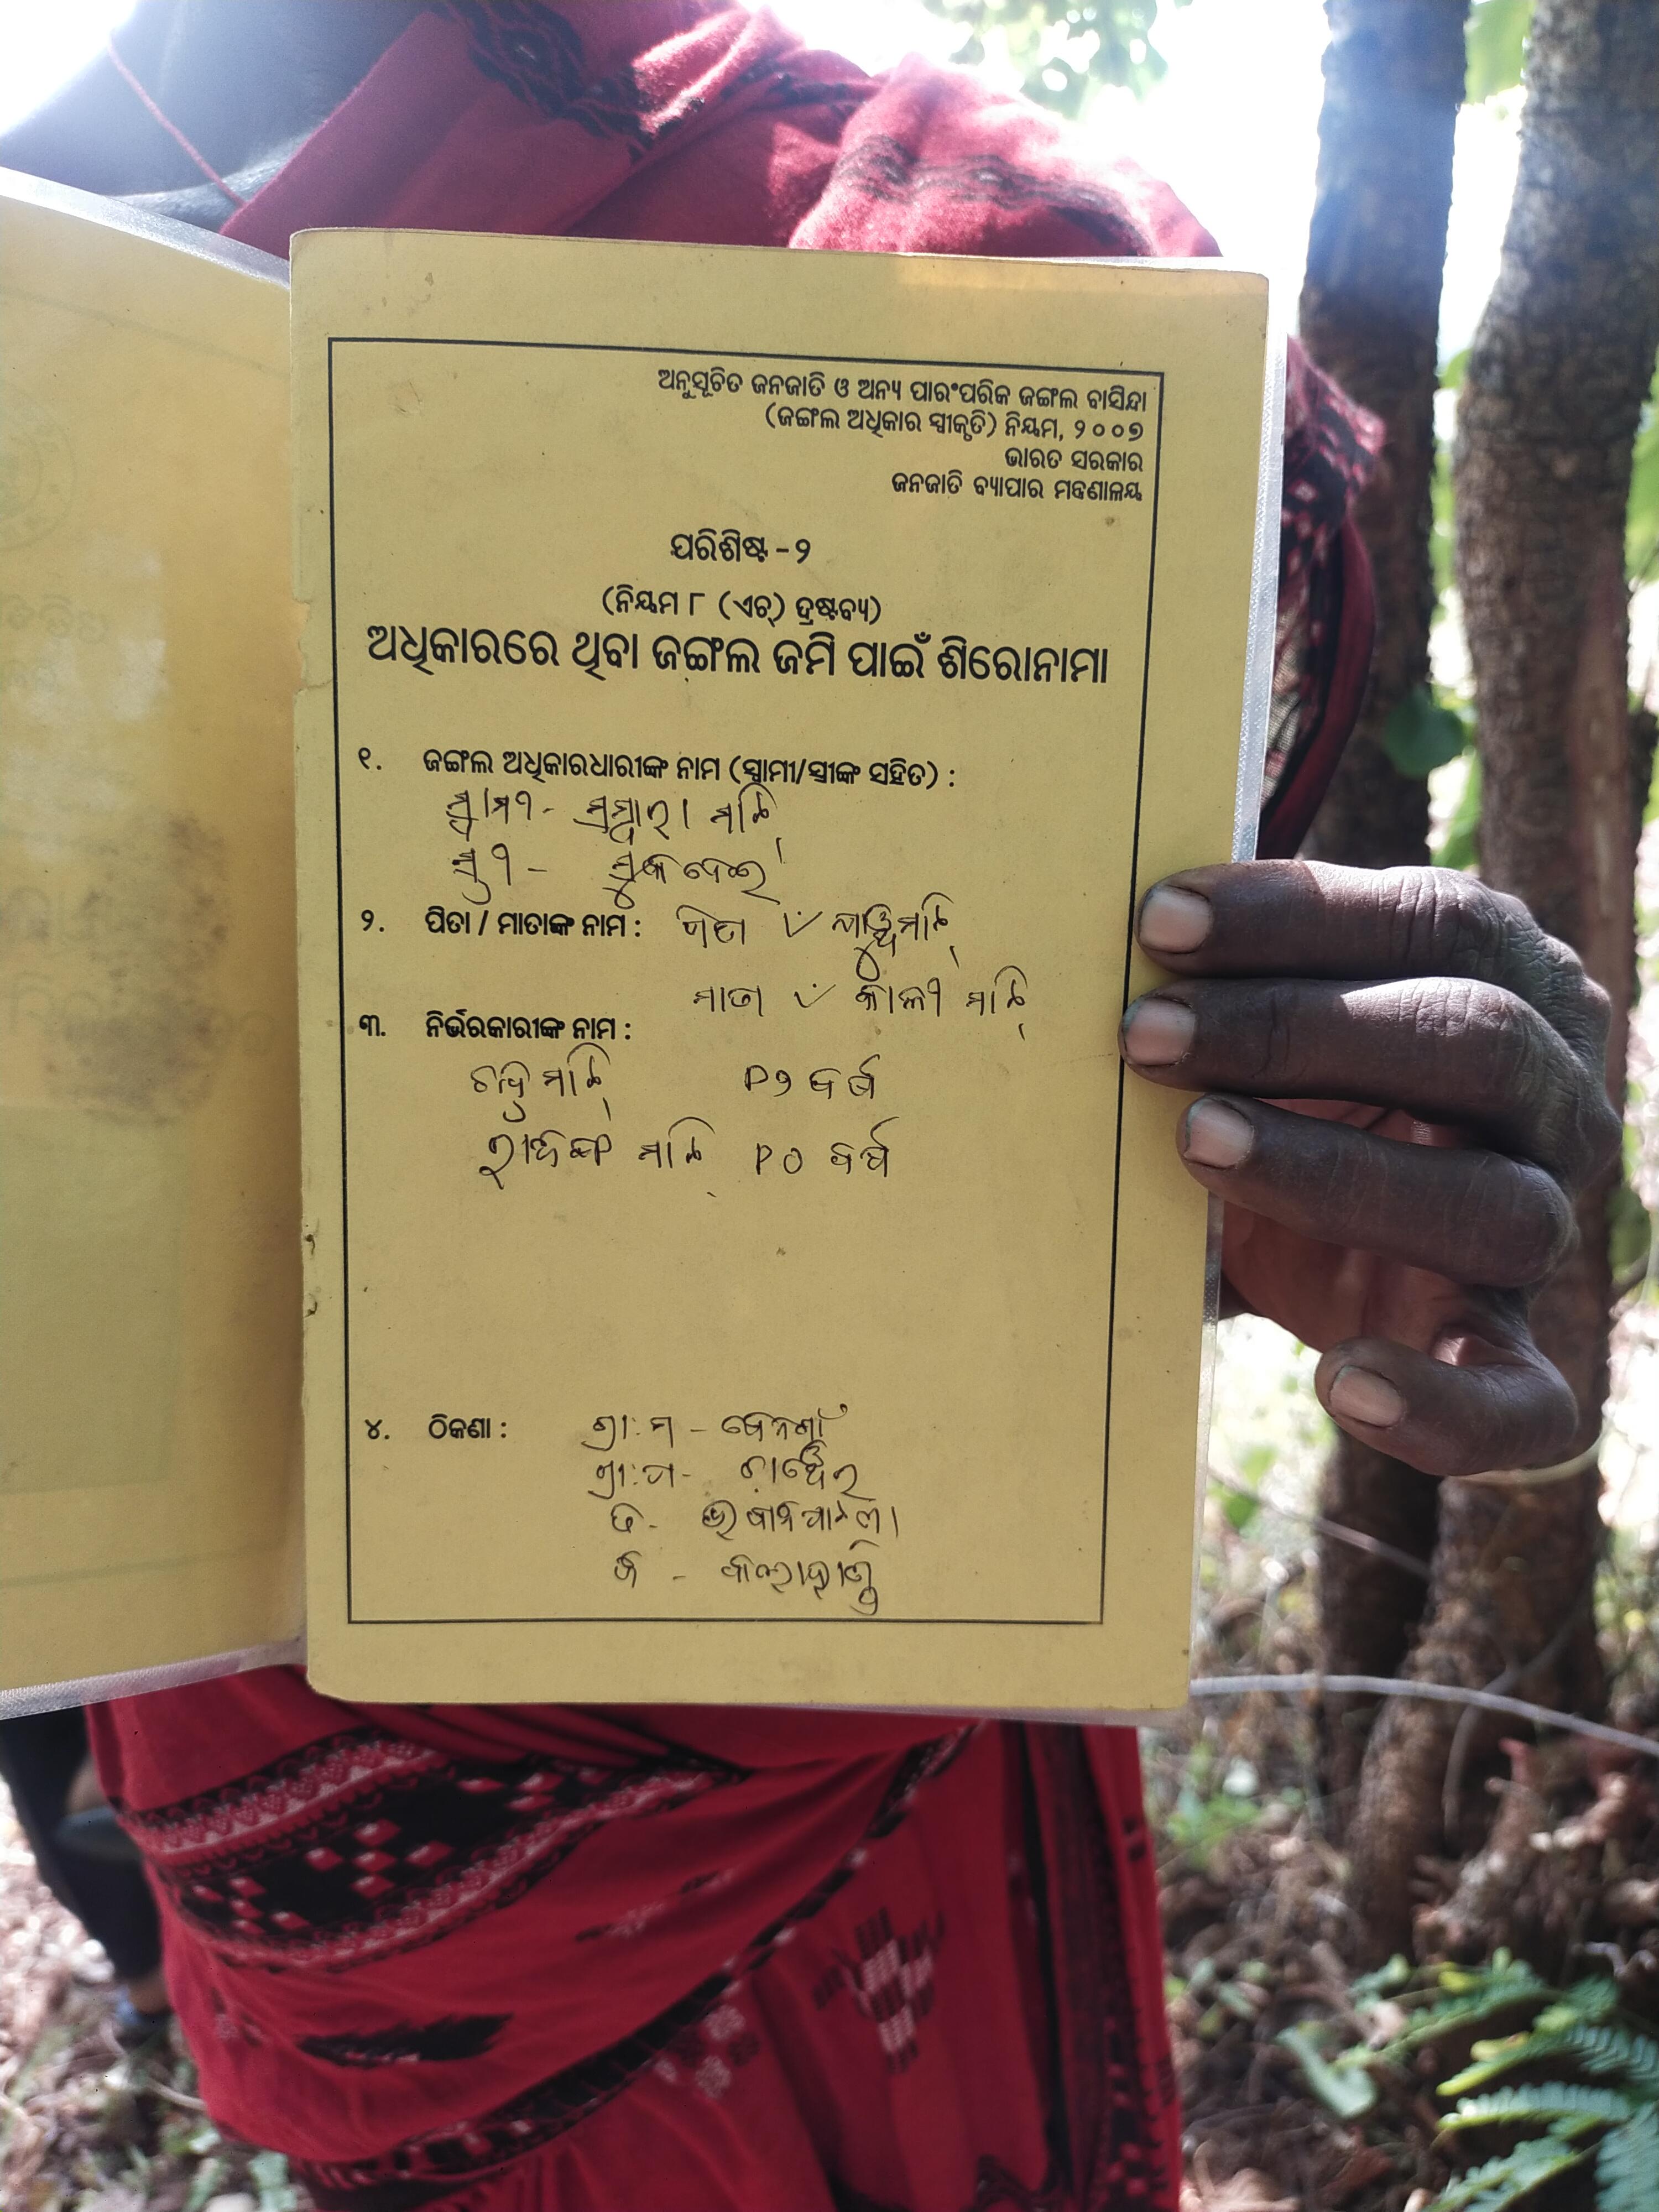 ଅନୁସୂଚିତ ଜନଜାତି ଓ ଅନ୍ୟ ପାରଂପରିକ ଜଙ୍ଗଲ ବାସିନ୍ଦା
(ଜଙ୍ଗଲ ଅଧିକାର ସ୍ବୀକୃତି) ନିୟମ, ୨୦୦୭
ଭାରତ ସରକାର
ଜନଜାତି ବ୍ୟାପାର ମନ୍ତ୍ରଣାଳୟ
ପରିଶିଷ୍ଟ - ୨
(ନିୟମ ୮ (ଏଚ୍) ଦ୍ରଷ୍ଟବ୍ୟ)
ଅଧିକାରରେ ଥିବା ଜଙ୍ଗଲ ଜମି ପାଇଁ ଶିରୋନାମା
୧. ଜଙ୍ଗଲ ଅଧିକାରଧାରୀଙ୍କ ନାମ (ସ୍ବାମୀ/ସ୍ତ୍ରୀଙ୍କ ସହିତ) :
ସ୍ବାମୀ - ମାଝି
ସ୍ତ୍ରୀ - ସୁକଦେଈ
୨. ପିତା / ମାତାଙ୍କ ନାମ : ପିତା ମାଝି
ମାତା କାଳୀ ମାଝି
୩. ନିର୍ଭରକାରୀଙ୍କ ନାମ :
ମାଝି ବର୍ଷ
ମାଝି ବର୍ଷ
୪. ଠିକଣା : ଗ୍ରା:ମ -
ଗ୍ରା:ପ -
ତ - ଭବାନୀପାଟଣା
ଜି - କଳାହାଣ୍ଡି